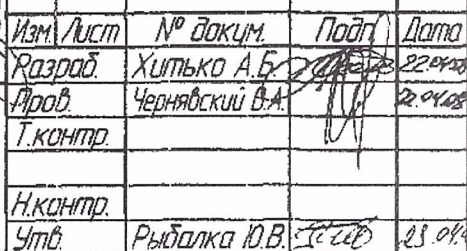 Изм. Лист № докум. Подп. Дата
Разраб. Хитько А.Б. 22.04.08
Пров. Чернявский В.А. 22.04.08
Т.контр.
Н.контр.
Утв. Рыбалка Ю.В. 23.04.